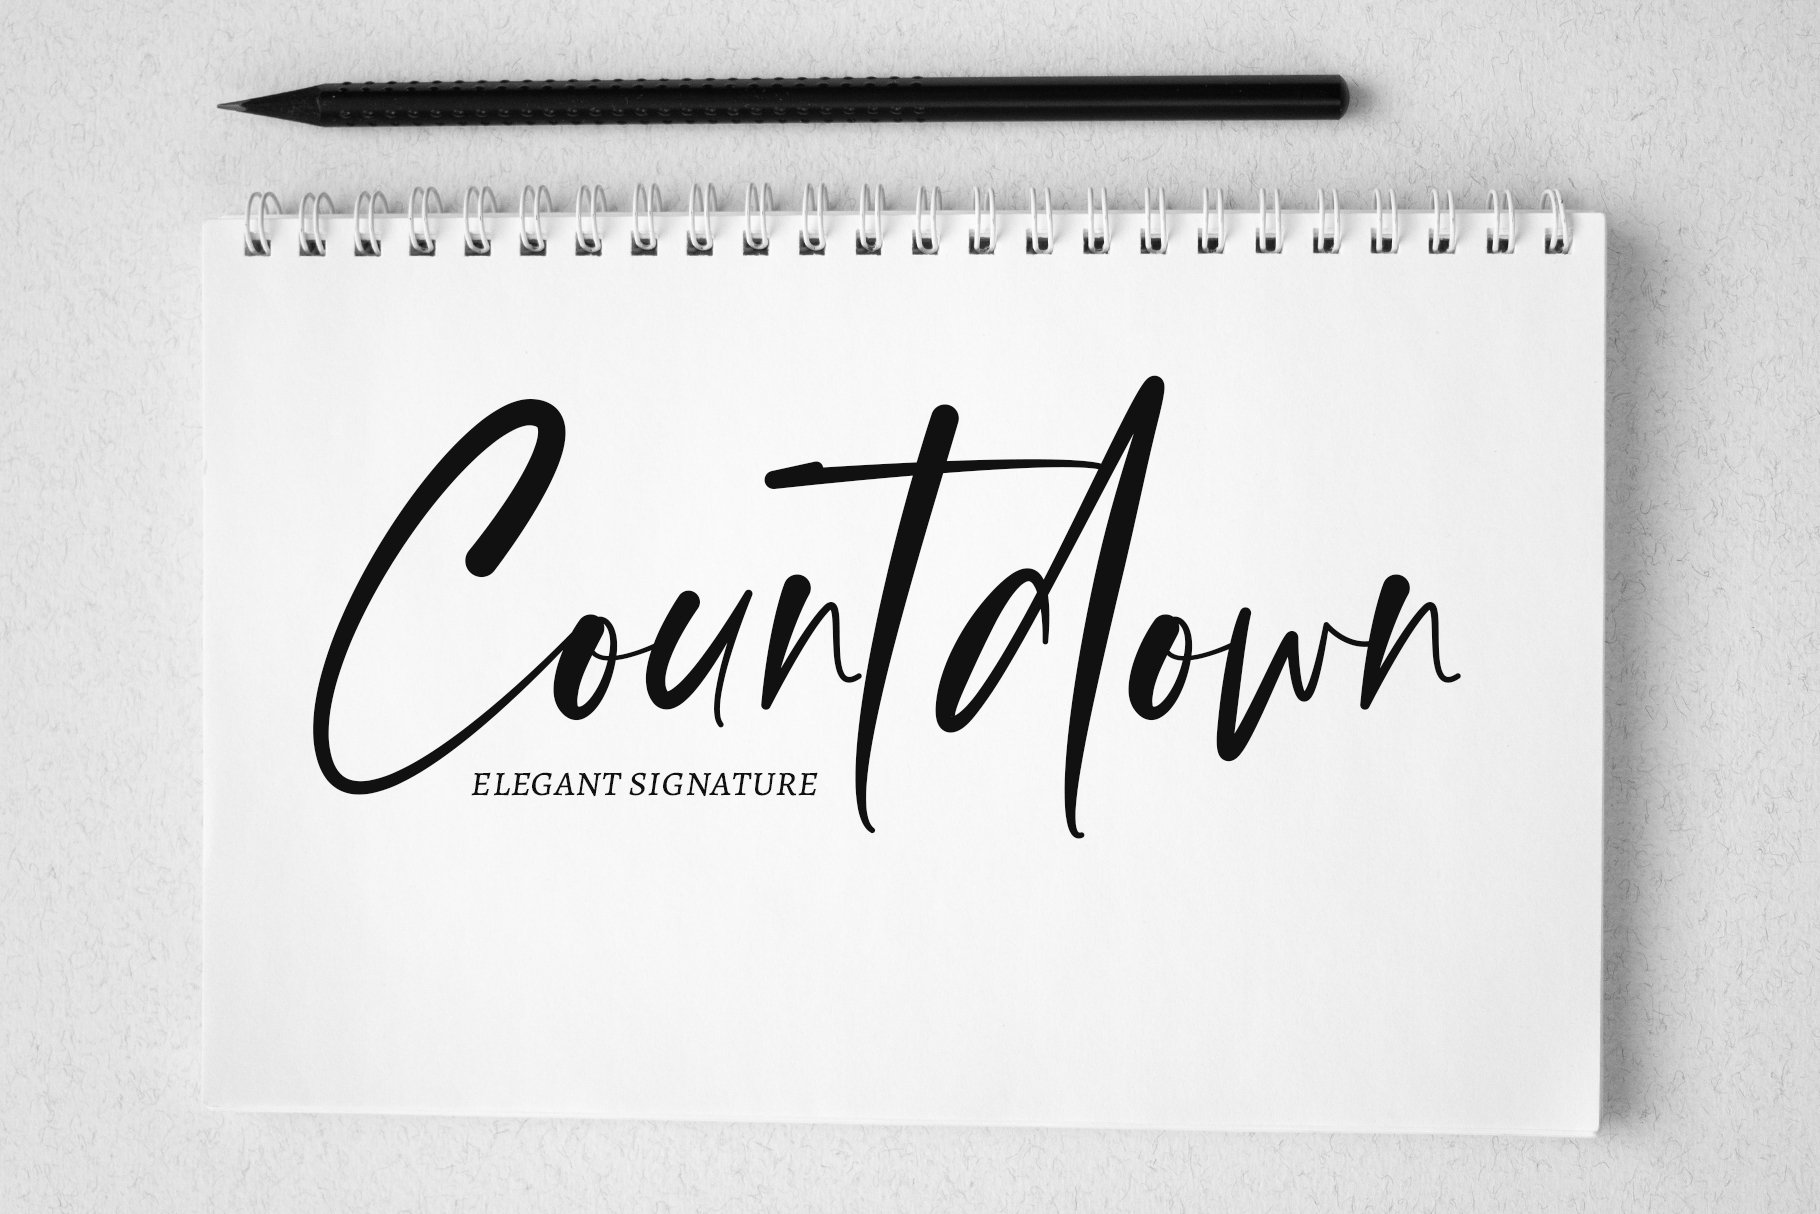 Countdown
ELEGANT SIGNATURE